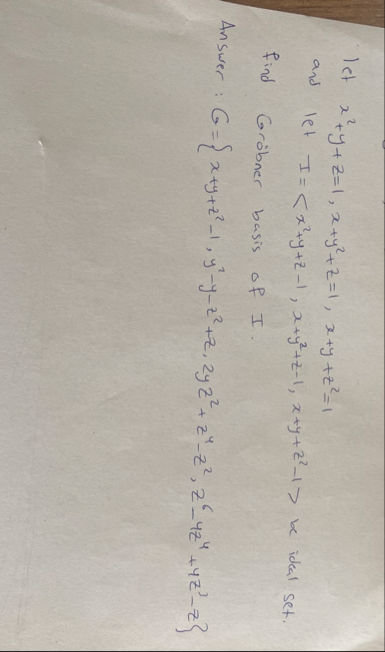 let x²+y+z=1, x+y²+z=1, x+y+z²=1
and let I=<x²+y+z-1, x+y²+z-1, x+y+z²-1> be ideal set.
find Gröbner basis of I.
Answer : G={x+y+z²-1, y²-y-z²+z, 2yz²+z⁴-z², z⁶-4z⁴+4z³-z}